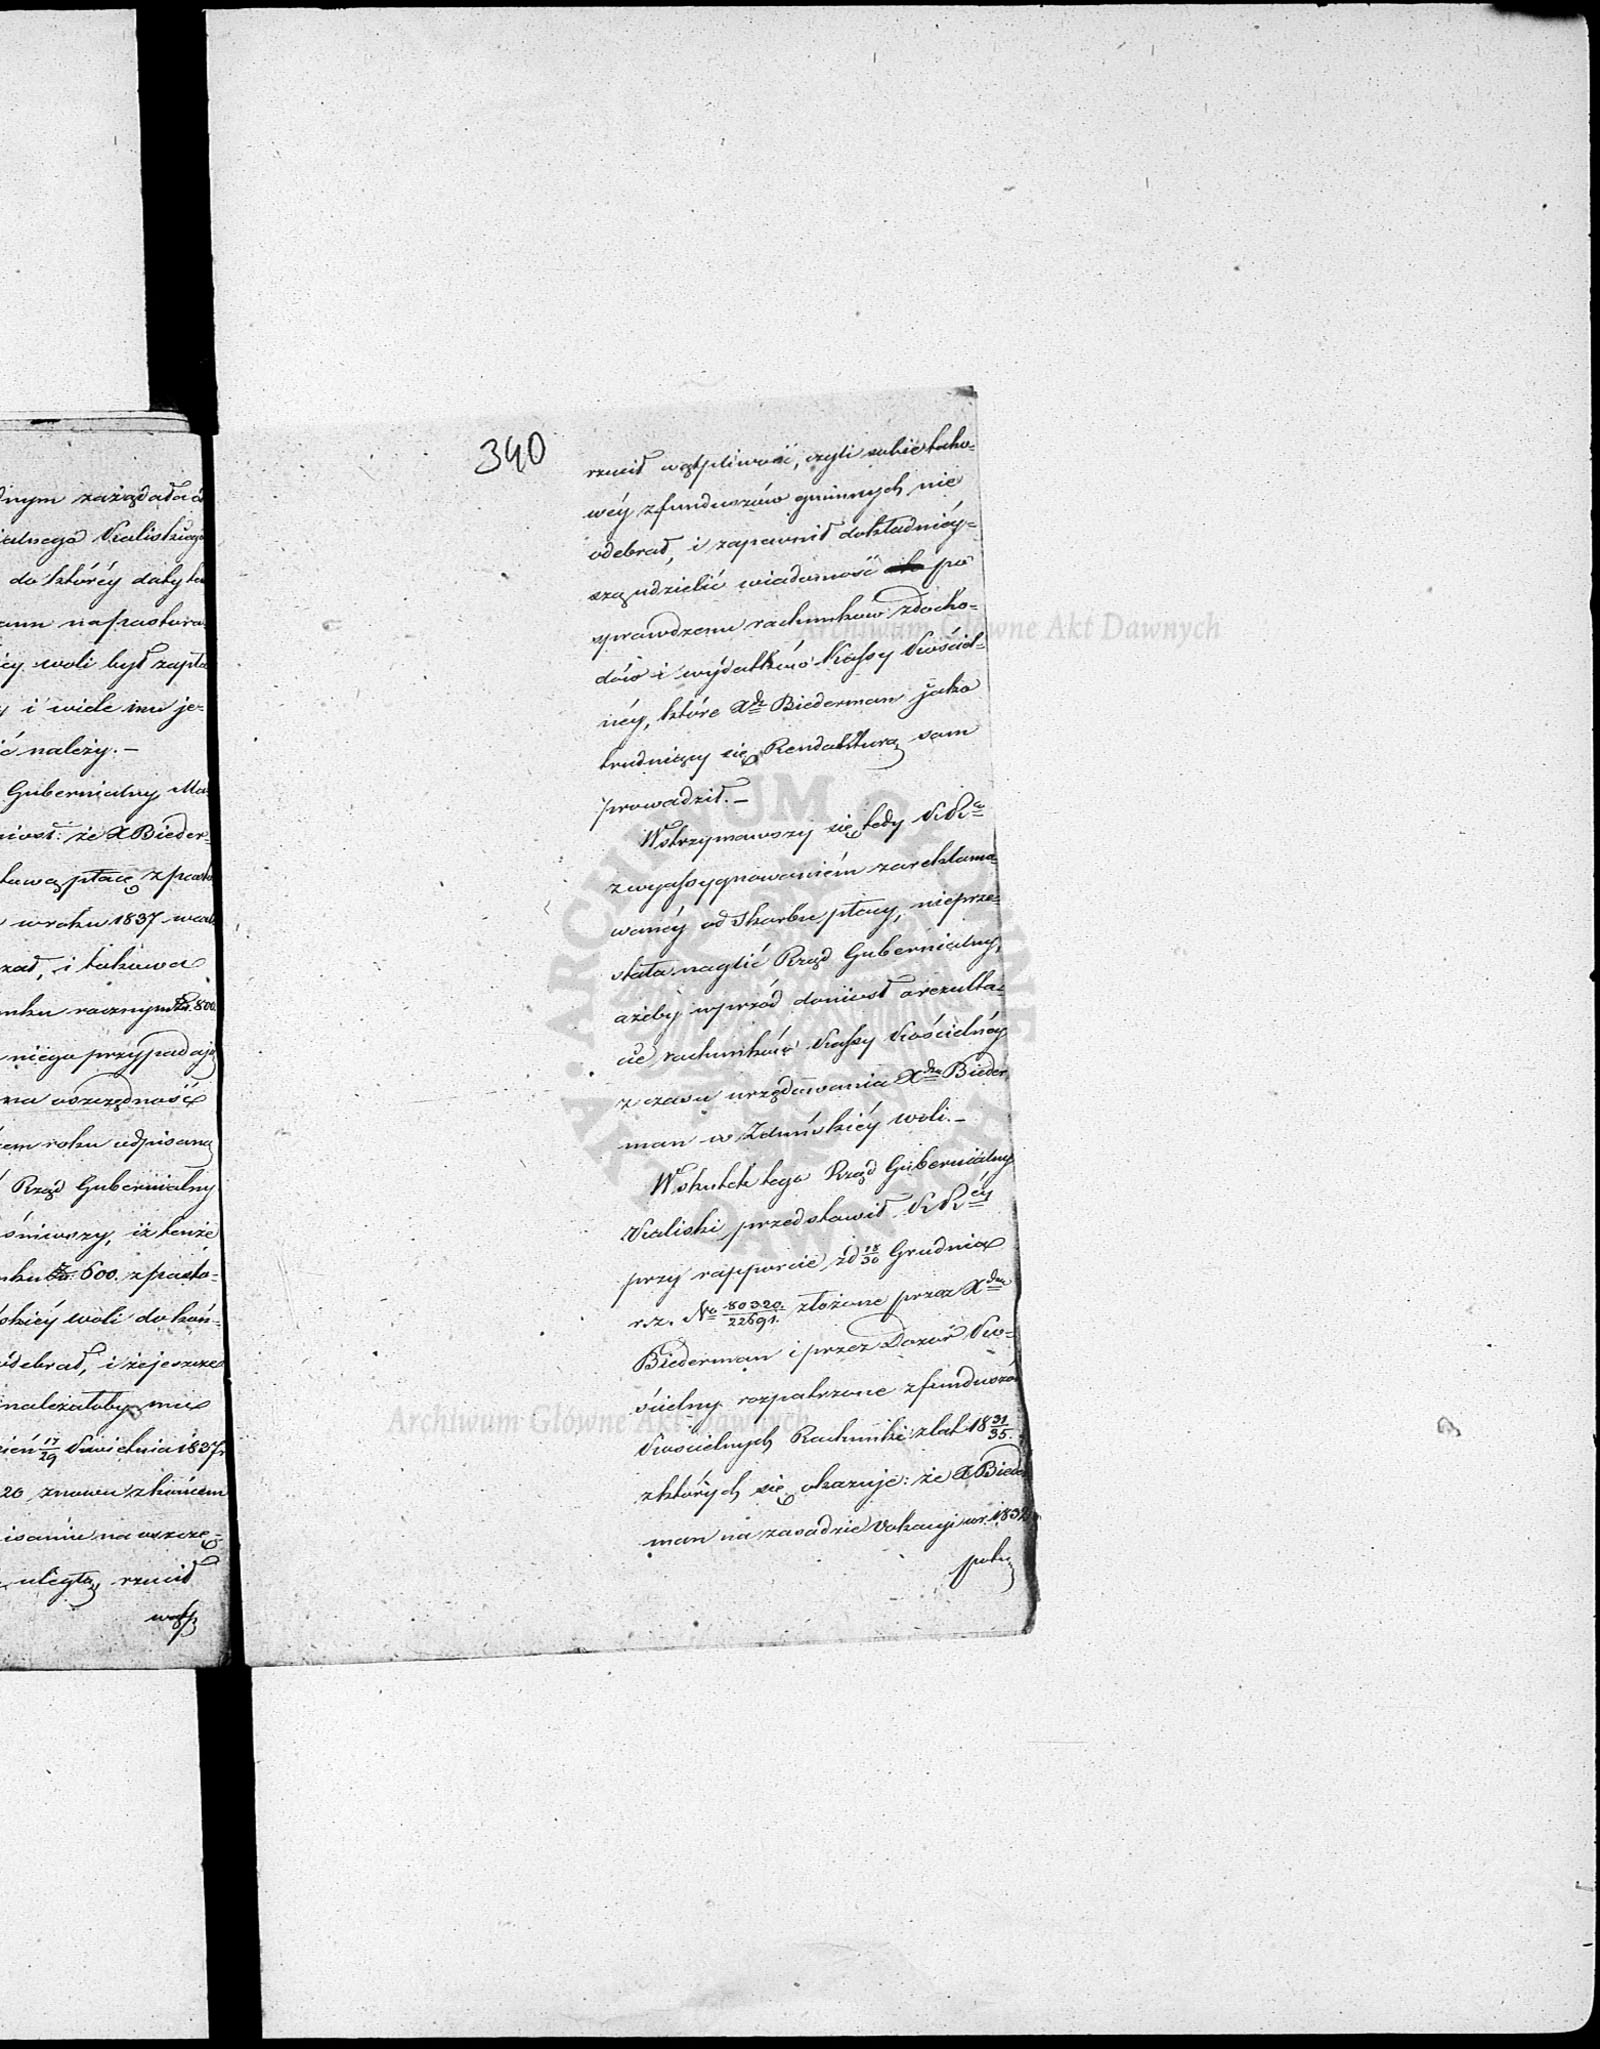 dnym zażądała od
ialnego Kaliskiego
do któréy daty ta
zum na pastora
iéy woli był zapła
y i wiele mu je-
ić należy. –
Gubernialny Ma-
niosł: że X Bieder-
kową płacę z pasto
w roku 1837 wak
zał, i takowa
unku rocznym Złr. 800.
niego przypadają
na oszczędność
em roku odpisaną
Rząd Gubernialny
śniwszy, iż tenże
nku Złr. 600. z pasto-
skiéy woli do koń-
odebrał, i że jeszcze
należałoby mu
zień 17/29 Kwietnia 1837 r
20 znowu z końcem
isaniu na oszczę-
uległą, rzucił
wątp
340
rzucił wątpliwość, czyli sobie tako-
wéy z funduszów gminnych nie
odebrał, i zapewnił dokładniéy-
szą udzielić wiadomość po
sprawdzeniu rachunkow z docho-
dów i wydatków Kassy Kościel-
néy, które Xdz Biederman jako
trudniący się Rendanturą sam
prowadził. –
Wstrzymawszy się tedy KRa
z wyassygnowaniem zareklamo-
wanéy od Skarbu płacy, nieprze-
stała naglić Rząd Gubernialny,
ażeby wprzód doniosł o rezulta-
cie rachunków Kassy Kościelnéy
z czasu urzędowania Xdza Bieder-
man w Zduńskiéy woli. –
Wskutek tego Rząd Gubernialny
Kaliski przedstawił KRéy
przy rapporcie z d 18/30 Grudnia
r. z. No 80320/22691. złożone przez Xdza
Biederman i przez Dozór Ko-
ścielny rozpatrzone z funduszów
Koscielnych Rachunki z lat 18 31/35.
z których się okazuje: że X Bieder
man na zasadzie Vokacyi w r. 1832
pobie
Archiwum Główne Akt Dawnych
ARCHIWUM GŁÓWNE AKT DAWNYCH
Archiwum Główne Akt Dawnych